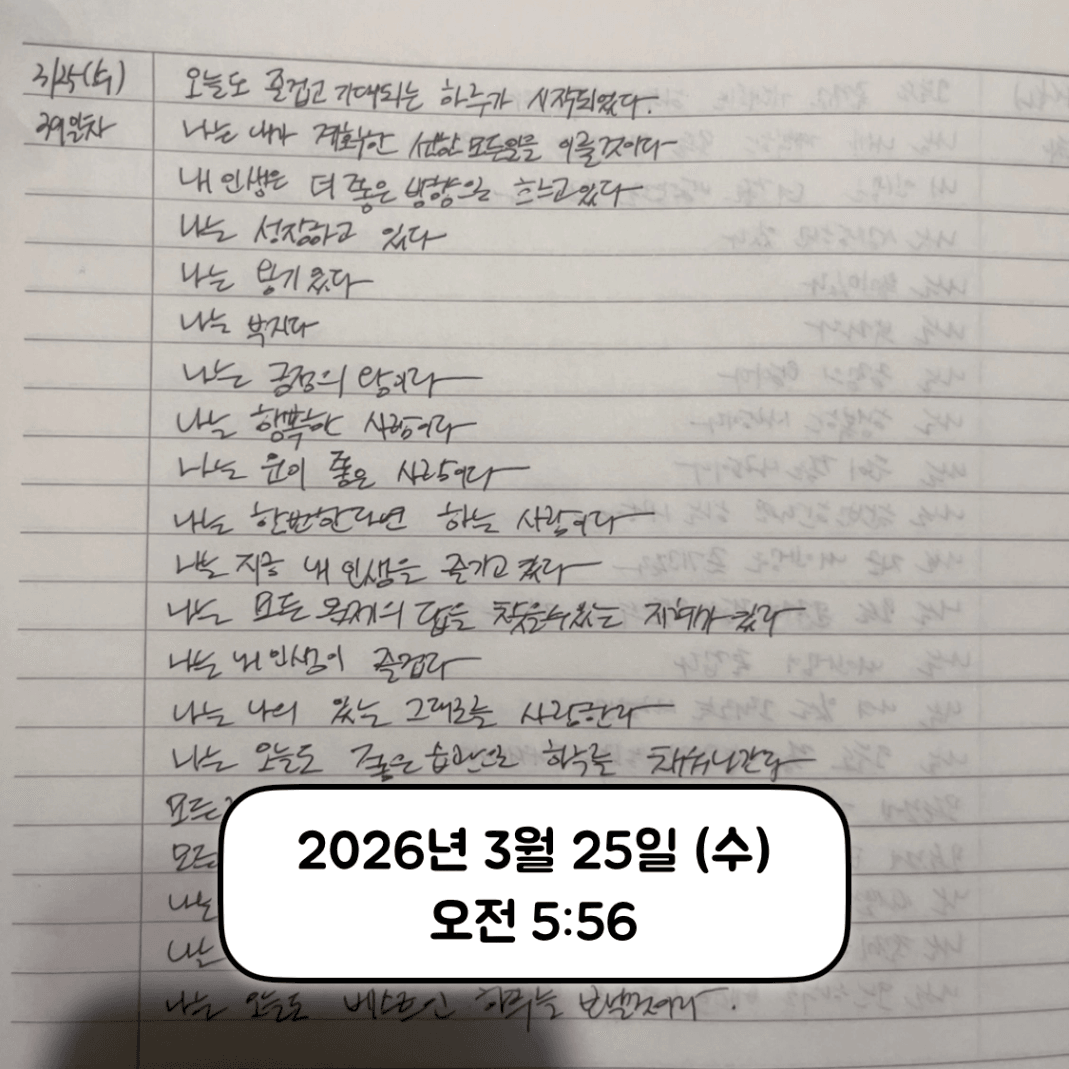 3/25(수) 오늘도 즐겁고 기대되는 하루가 시작되었다.
39일차 나는 내가 계획한 모든일을 이룰것이다
내 인생은 더 좋은 방향으로 흐르고있다
나는 성장하고 있다
나는 용기있다
나는 부자다
나는 긍정의 왕이다
나는 행복한 사람이다
나는 운이 좋은 사람이다
나는 한번한다면 하는 사람이다
나는 지금 내 인생을 즐기고 있다
나는 모든 문제의 답을 찾을수있는 지혜가 있다
나는 내 인생이 즐겁다
나는 나의 있는 그대로를 사랑한다
나는 오늘도 좋은 습관으로 하루를 채워나간다
모든
모든
나는
나는
2026년 3월 25일 (수)
오전 5:56
나는 오늘도 베스트인 하루를 보낼것이다.